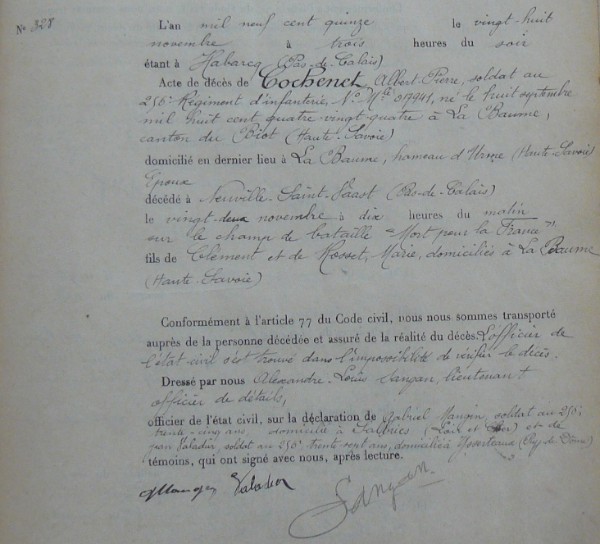 N° 328
L'an mil neuf cent quinze le vingt-huit
novembre à trois heures du soir
étant à Habarcq (Pas-de-Calais)
Acte de décès de Cochenet, Albert-Pierre, soldat au
256e Régiment d'infanterie, N° Mle 017941, né le huit septembre
mil huit cent quatre vingt quatre à La Baume,
canton du Biot (Haute-Savoie)
domicilié en dernier lieu à La Baume, hameau d'Urine (Haute-Savoie)
Époux
décédé à Neuville-Saint-Vaast (Pas-de-Calais)
le vingt-deux novembre à dix heures du matin
sur le champ de bataille "Mort pour la France",
fils de Clément et de Rosset, Marie, domiciliée à La Baume
(Haute-Savoie)
Conformément à l'article 77 du Code civil, nous nous sommes transporté
auprès de la personne décédée et assuré de la réalité du décès. L'officier de
l'état civil s'est trouvé dans l'impossibilité de vérifier le décès.
Dressé par nous Alexandre-Louis Sangan, lieutenant
officier de détails,
officier de l'état civil, sur la déclaration de Gabriel Mangin, soldat au 256e
trente-cinq ans, domicilié à Salbris (Loir et Cher) et de
Jean Paladin, soldat au 256e trente sept ans, domicilié à (Puy de Dôme)
témoins, qui ont signé avec nous, après lecture.
Mangin Paladin
Sangan